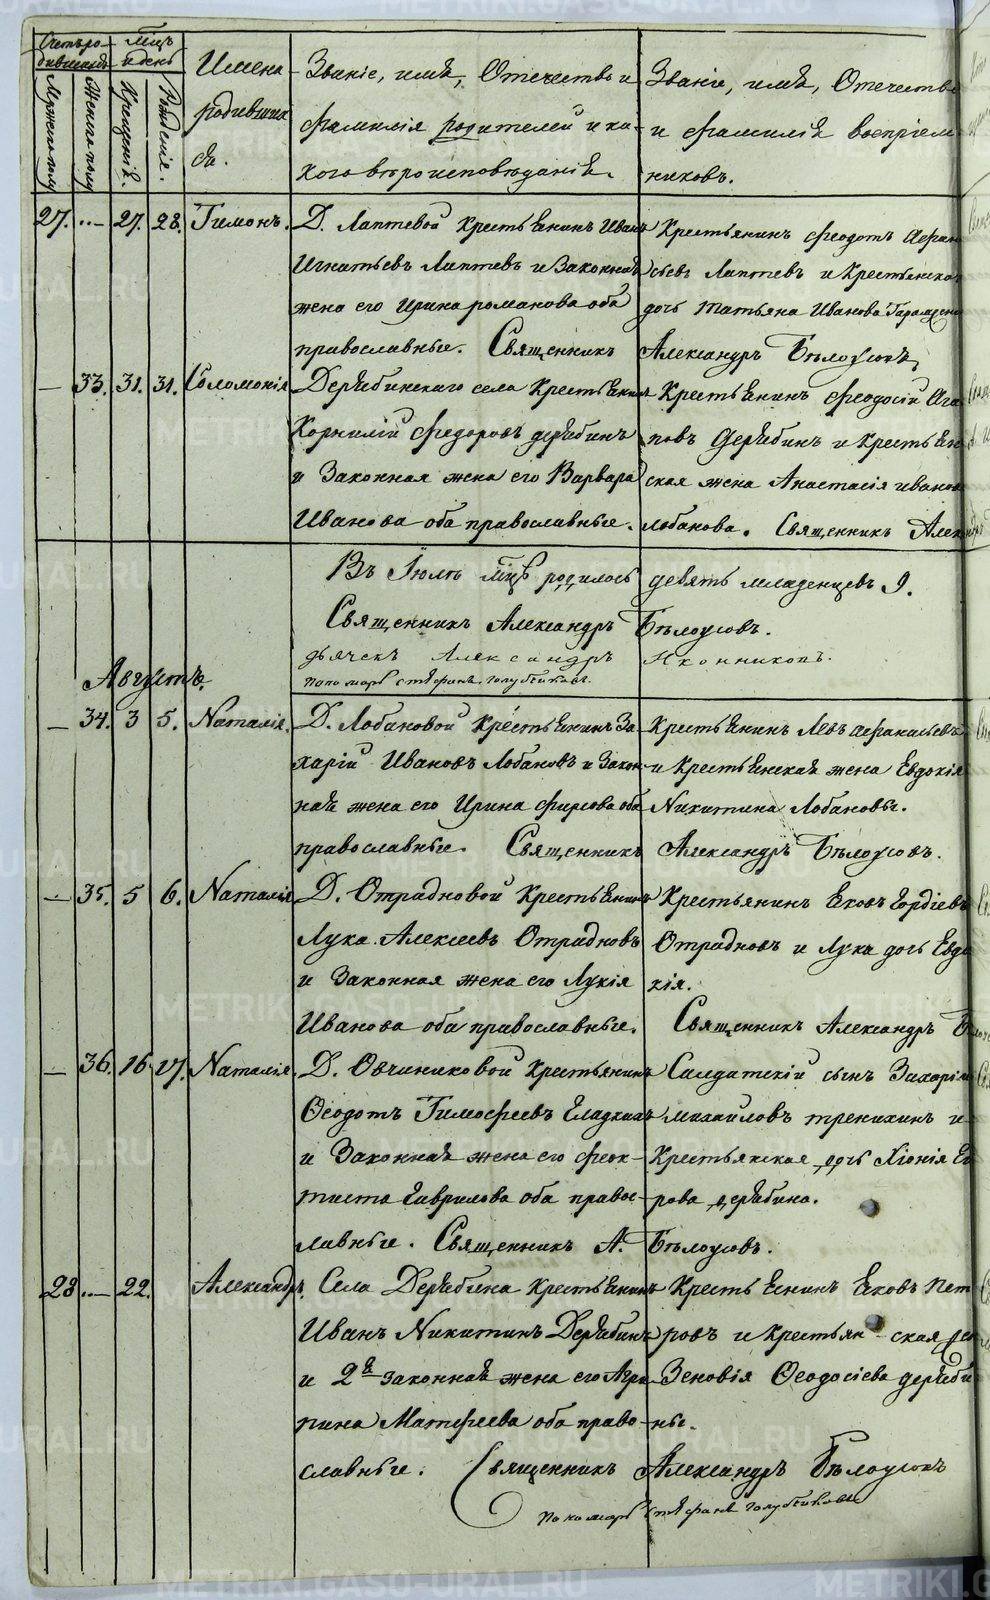 Счетъ родившихся
Мѣсяцъ и день
Мужеска полу
Женска полу
Крещенія.
Рожденія.
Имена родившихся.
Званіе, имя, Отечество и
фамилія родителей и ка-
кого вѣроисповѣданія.
Званіе, имя, Отечество
и фамилія воспріем-
никовъ.
27. — 27. 28. Тимонъ.
Д. Лаптевой Крестьянинъ Иванъ
Игнатьевъ Лаптевъ и Законная
жена его Ирина романова оба
православные. Священникъ
Крестьянинъ Феодотъ Афана-
сьевъ Лаптевъ и Крестьянска
дочь Татьяна Иванова
Александръ Бѣлоусовъ
— 33. 31. 31. Соломонія
Дерябинскаго села Крестьянинъ
Корнилій Федоровъ дерябинъ
и Законная жена его Варвара
Иванова оба православные.
Крестьянинъ Феодосій Ага-
повъ Дерябинъ и Крестьян
ская жена Анастасія иванова
лобанова. Священникъ Алек
Въ Іюлѣ мцѣ родилось девять младенцевъ 9.
Священникъ Александръ Бѣлоусовъ.
дьячекъ Александръ Иконниковъ.
пономарь стефанъ голубчиковъ.
Августъ.
— 34. 3 5. Наталія.
Д. Лобановой Крестьянинъ За-
харій Ивановъ Лобановъ и Закон-
ная жена его Ирина фирсова оба
православные. Священникъ
Крестьянинъ Левъ афанасьевъ
и Крестьянская жена Евдокія
Никитина Лобановы.
Александръ Бѣлоусовъ.
— 35. 5 6. Наталія
Д. Отрадновой Крестьянинъ
Лука Алексеевъ Отрадновъ
и Законная жена его Лукія
Иванова оба православные.
Крестьянинъ Яковъ Гордіевъ
Отрадновъ и Лука дочь Евдо
кія.
Священникъ Александръ Б
— 36. 16 17. Наталія.
Д. Овчиниковой Крестьянинъ
Ѳеодотъ Тимофеевъ
и Законная жена его феок-
тиста Гаврилова оба право-
лавные. Священникъ А. Бѣлоусовъ.
Салдатскій сынъ Захарій
михайловъ и
Крестьянская дочь Хіонія
рова дерябина.
28 — 22. Александръ.
Села Дерябина Крестьянинъ
Иванъ Никитинъ Дерябинъ
и 2я законная жена его Агри-
пина Матфеева оба право-
славные. Священникъ Александръ Бѣлоусовъ
Крестьянинъ Яковъ Пет
ровъ и Крестьян-ская
Зеновія Ѳеодосіева деряби
ны.
пономарь стефанъ голубчиковъ
METRIKI.GASO-URAL.RU